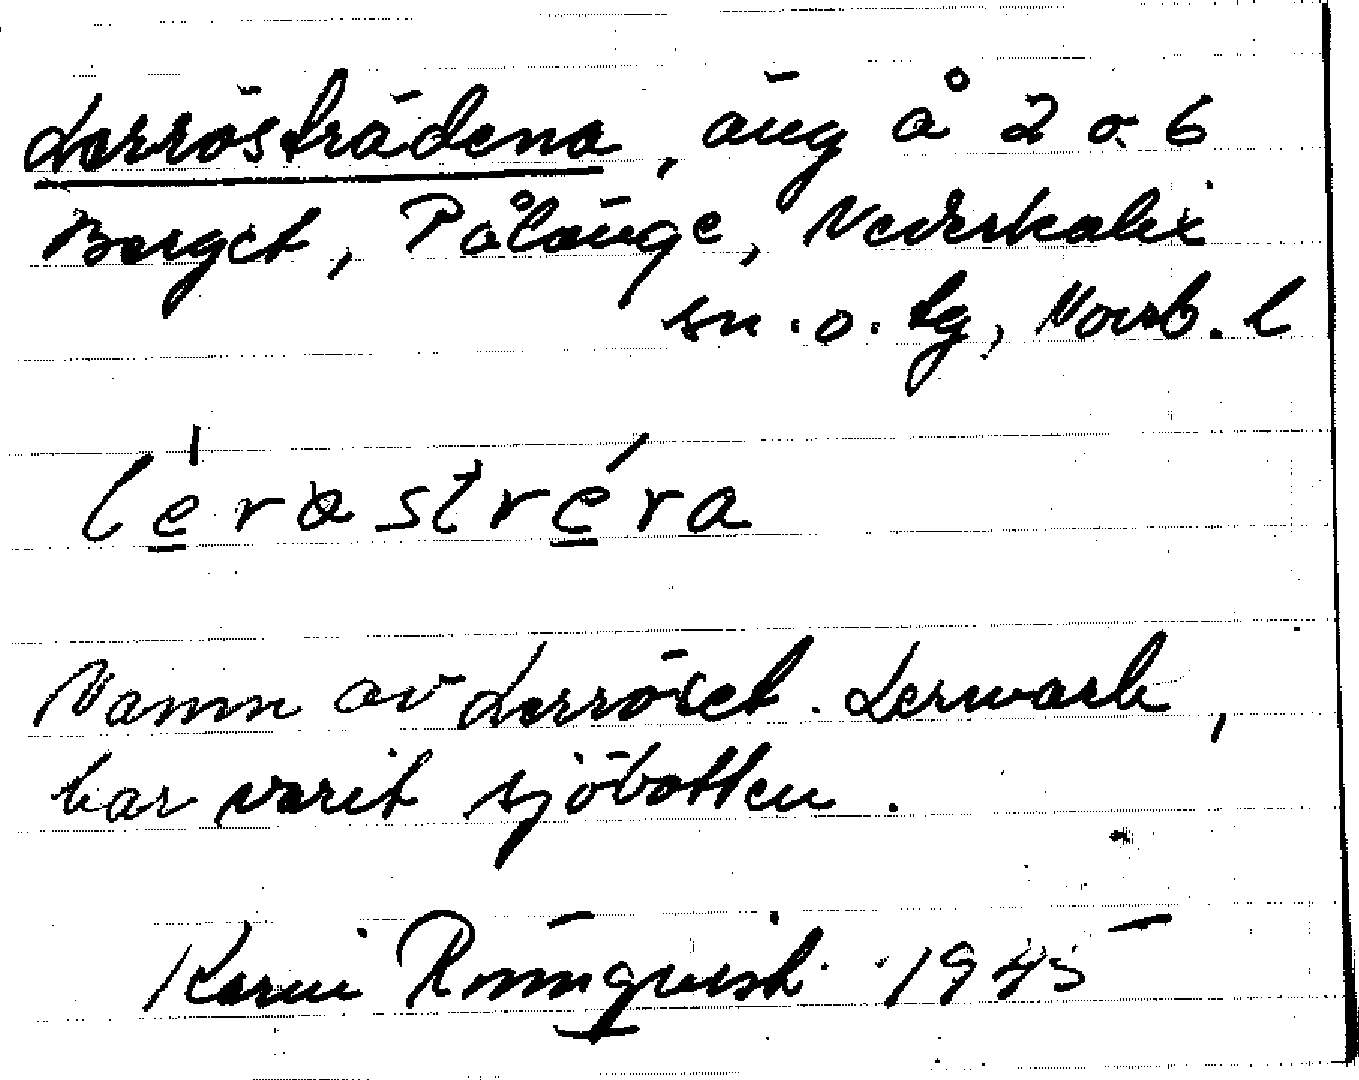 Lerrösträdena, äng å 2 o. 6
Berget, Pålänge, Nederkalix
sn. o. tg, Norrb. l
lérastréra
Namn av Lerröset. Lermark,
har varit sjöbotten.
Karin Rönnqvist. 1945